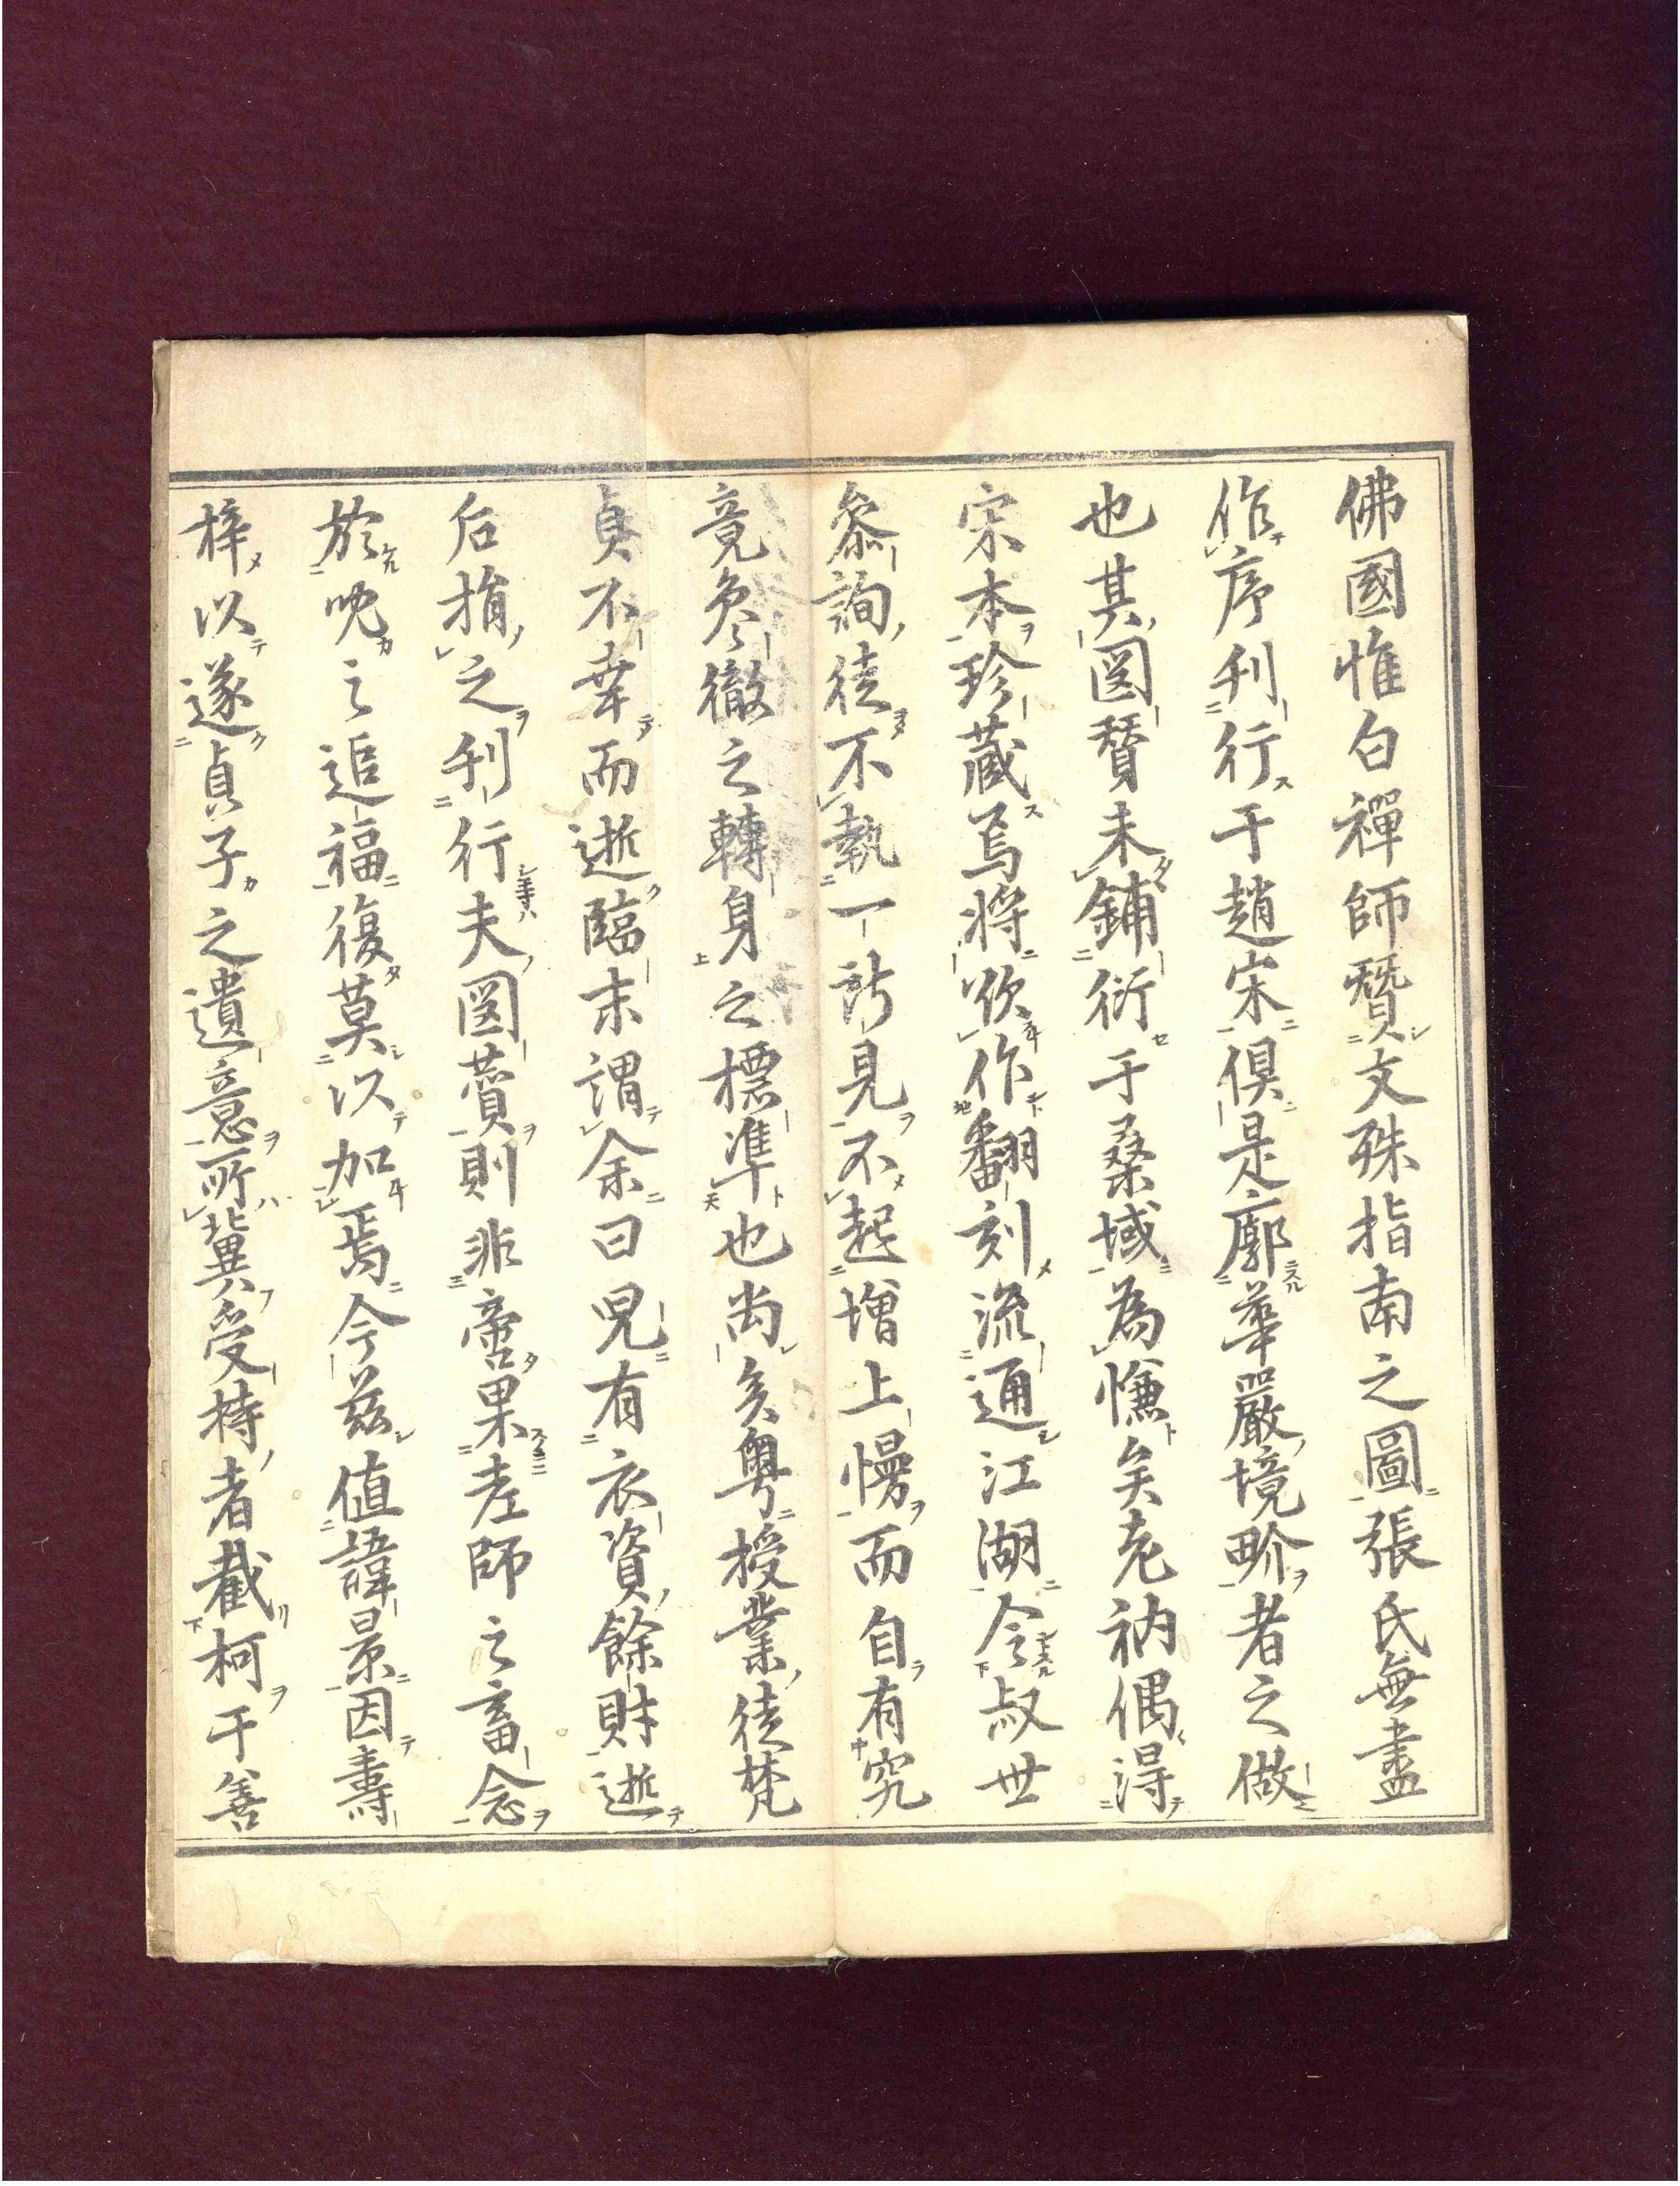 佛國惟白禪師賛文殊指南之圖張氏無盡
作序刊行于趙宋俱是廓華嚴境畍者之做
也其圖賛未鋪衍于桑域為慊矣老衲偶淂
宋本珍藏焉將欲作翻刻流通江湖令叔世
叅詢徒不執一所見不起增上慢而自有究
竟徹之轉身之標準也尚矣粤授業徒梵
貞不幸而逝臨末謂余曰児有衣資餘財逝
后捐之刊行夫圖賛則非啻果老師之畜念
於之追福復莫以加焉今茲值諱景因壽
梓以遂貞子之遺意所冀受持者截柯于善